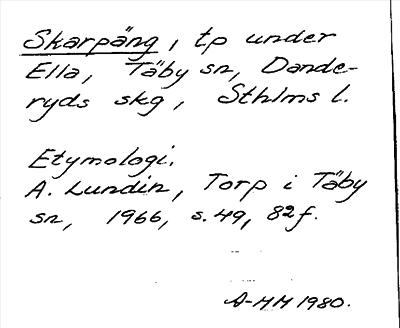 Skarpäng, tp under
Ella, Täby sn, Dande-
ryds skg, Sthlms l.
Etymologi.
A. Lundin, Torp i Täby
sn, 1966, s. 49, 82f.
A-MM 1980.